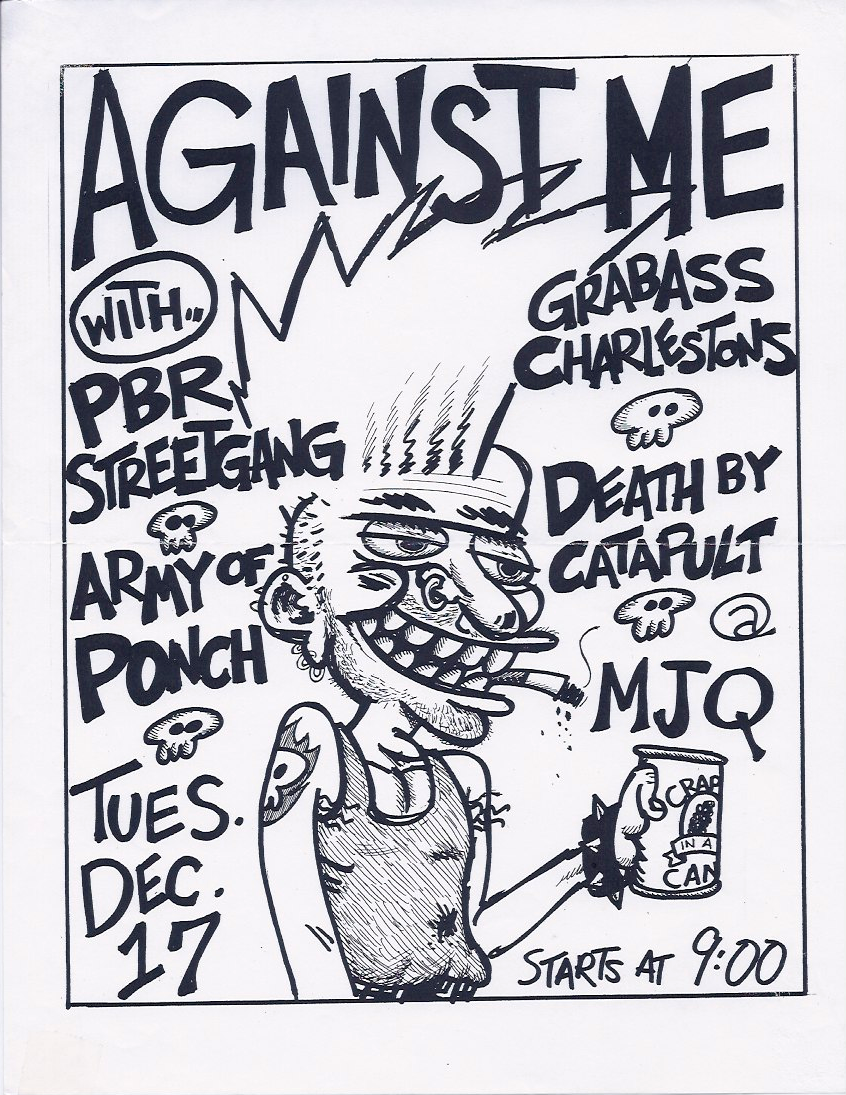 AGAINST ME
WITH..
PBR
STREETGANG
ARMY OF
PONCH
TUES.
DEC.
17
GRABASS
CHARLESTONS
DEATH BY
CATAPULT
@
MJQ
CRAP
IN A
CAN
STARTS AT 9:00